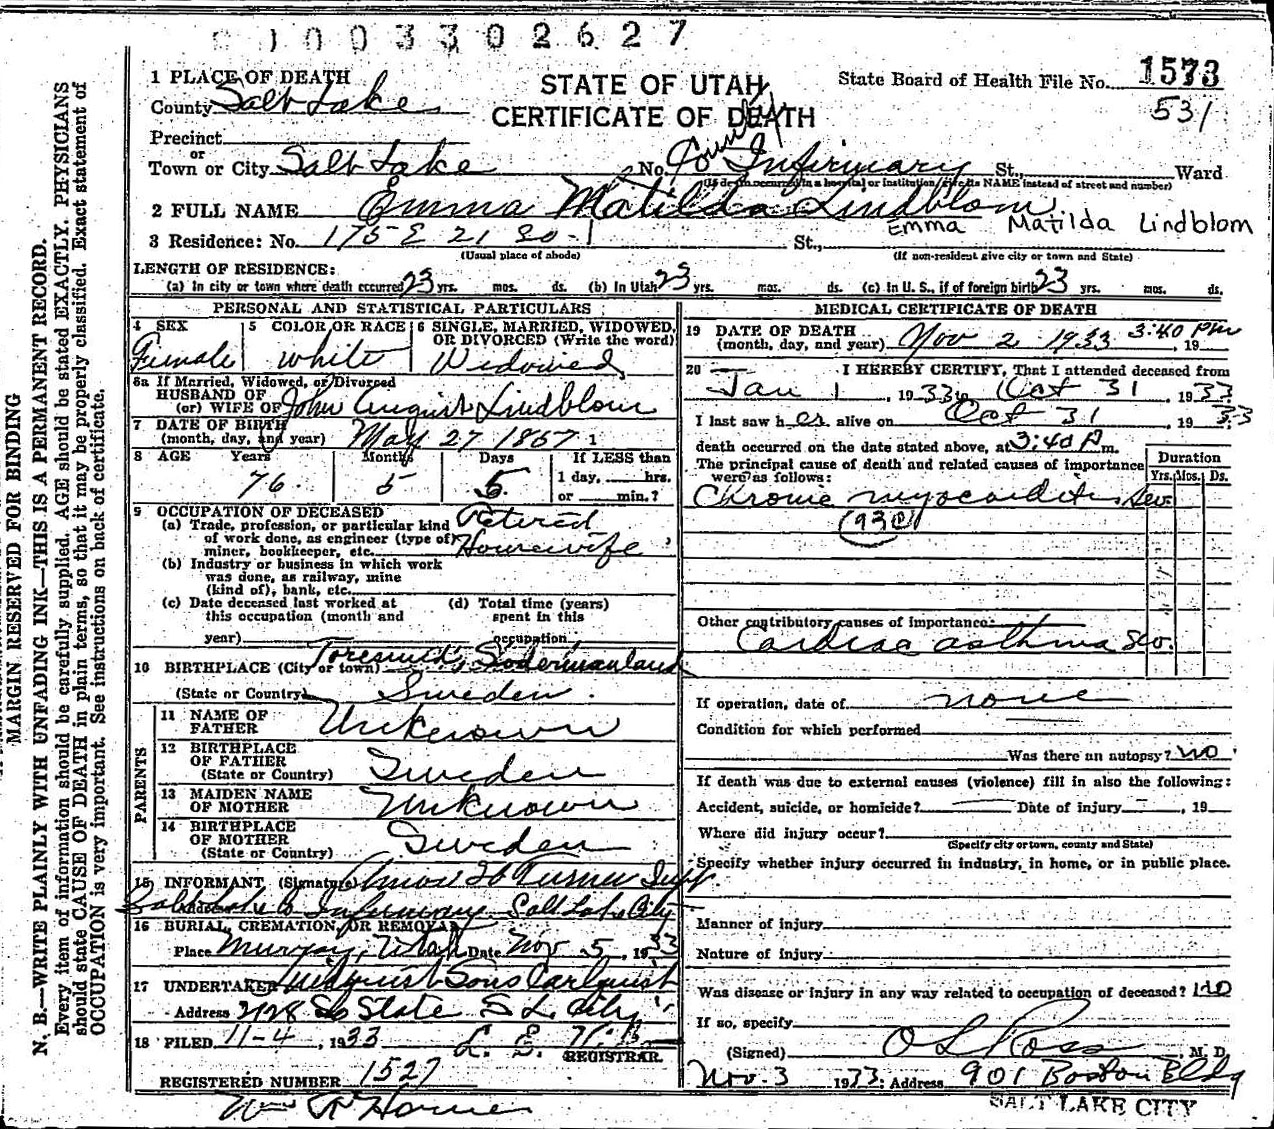 0 1 0 0 3 3 0 2 6 2 7
1 PLACE OF DEATH
STATE OF UTAH
CERTIFICATE OF DEATH
State Board of Health File No. 1573
531
County Salt Lake
Precinct
or
Town or City Salt Lake No. County Infirmary St., Ward
(If death occurred in a hospital or institution, give its NAME instead of street and number)
2 FULL NAME Emma Matilda Lindblom
Emma Matilda Lindblom
3 Residence: No. 175 E 21 So. St.,
(Usual place of abode) (If non-resident give city or town and State)
LENGTH OF RESIDENCE:
(a) In city or town where death occurred 23 yrs. mos. ds. (b) In Utah 23 yrs. mos. ds. (c) In U. S., if of foreign birth 23 yrs. mos. ds.
PERSONAL AND STATISTICAL PARTICULARS
4 SEX 5 COLOR OR RACE 6 SINGLE, MARRIED, WIDOWED, OR DIVORCED (Write the word)
Female White Widowed
6a If Married, Widowed, or Divorced
HUSBAND OF
(or) WIFE OF John August Lindblom
7 DATE OF BIRTH
(month, day, and year) May 27 1857
8 AGE Years Months Days If LESS than
1 day, hrs.
76 5 5 or min.?
9 OCCUPATION OF DECEASED
(a) Trade, profession, or particular kind Retired
of work done, as engineer (type of) Housewife
miner, bookkeeper, etc.
(b) Industry or business in which work
was done, as railway, mine
(kind of), bank, etc.
(c) Date deceased last worked at (d) Total time (years)
this occupation (month and spent in this
year) occupation
10 BIRTHPLACE (City or town) Södermanland
(State or Country) Sweden.
PARENTS
11 NAME OF
FATHER Unknown
12 BIRTHPLACE
OF FATHER
(State or Country) Sweden
13 MAIDEN NAME
OF MOTHER Unknown
14 BIRTHPLACE
OF MOTHER
(State or Country) Sweden
15 INFORMANT (Signature) Turner Supt
(Address) Salt Lake Co Infirmary Salt Lake City
16 BURIAL, CREMATION, OR REMOVAL
Place Murray, Utah Date Nov 5, 1933
17 UNDERTAKER Lindquist Sons Carlquist
Address 2128 So State S L City
18 FILED 11-4, 1933
REGISTRAR.
REGISTERED NUMBER 1527
MEDICAL CERTIFICATE OF DEATH
19 DATE OF DEATH
(month, day, and year) Nov 2 1933 3:40 PM, 19
20 I HEREBY CERTIFY, That I attended deceased from
Jan 1, 1933 to Oct 31, 1933
I last saw h er alive on Oct 31, 1933
death occurred on the date stated above, at 3:40 P m.
The principal cause of death and related causes of importance
were as follows:
Duration
Yrs. Mos. Ds.
Chronic myocarditis sev.
(93c)
Other contributory causes of importance:
Cardiac asthma sev.
If operation, date of none
Condition for which performed
Was there an autopsy? no
If death was due to external causes (violence) fill in also the following:
Accident, suicide, or homicide? Date of injury, 19
Where did injury occur?
(Specify city or town, county and State)
Specify whether injury occurred in industry, in home, or in public place.
Manner of injury
Nature of injury
Was disease or injury in any way related to occupation of deceased? no
If so, specify
(Signed) O L Ross, M. D.
Nov. 3 1933: Address 901 Boston Bldg
SALT LAKE CITY
MARGIN RESERVED FOR BINDING
N. B.—WRITE PLAINLY WITH UNFADING INK—THIS IS A PERMANENT RECORD.
Every item of information should be carefully supplied. AGE should be stated EXACTLY. PHYSICIANS
should state CAUSE OF DEATH in plain terms, so that it may be properly classified. Exact statement of
OCCUPATION is very important. See instructions on back of certificate.